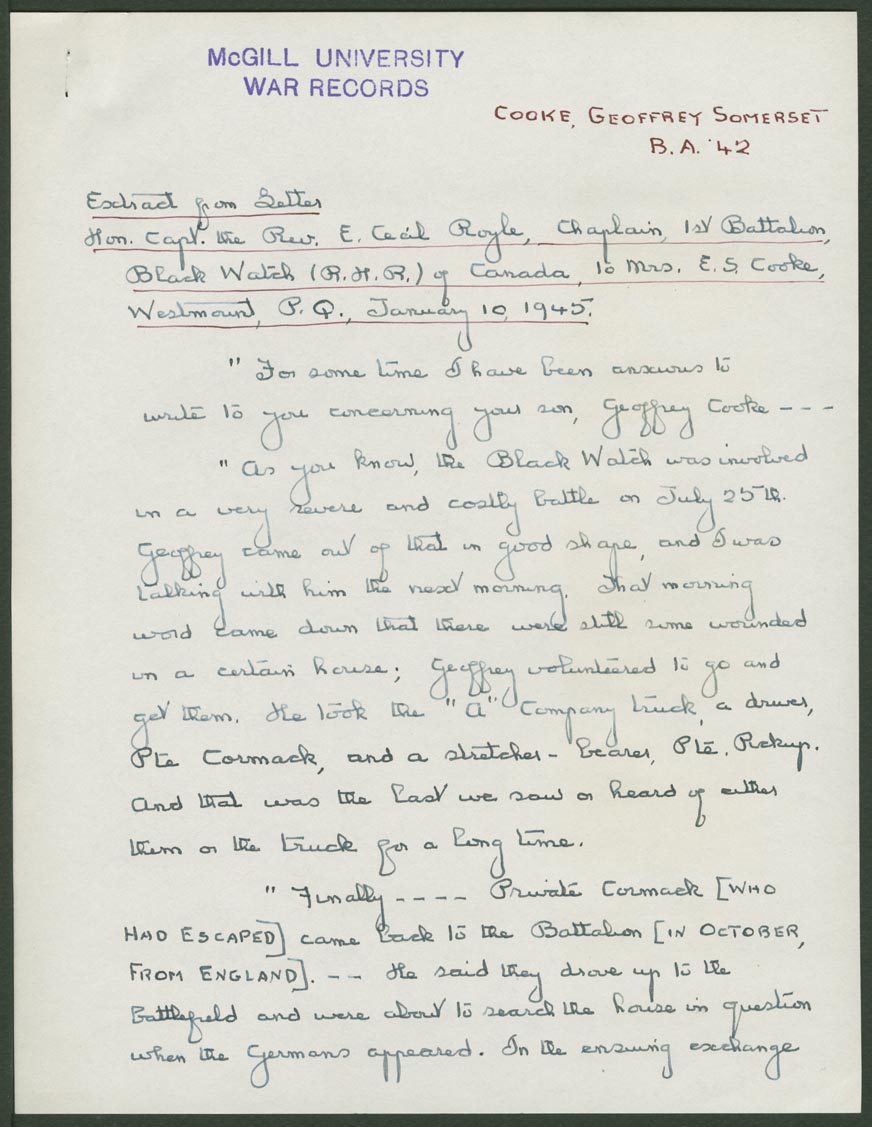 McGILL UNIVERSITY
WAR RECORDS
COOKE, GEOFFREY SOMERSET
B.A. '42
Extract from Letter
Hon. Capt. the Rev. E. Cecil Royle, Chaplain, 1st Battalion,
Black Watch (R.H.R.) of Canada, to Mrs. E.S. Cooke,
Westmount, P.Q., January 10, 1945.
" For some time I have been anxious to
write to you concerning your son, Geoffrey Cooke ---
" As you know, the Black Watch was involved
in a very severe and costly battle on July 25th.
Geoffrey came out of that in good shape, and I was
talking with him the next morning. That morning
word came down that there were still some wounded
in a certain house; Geoffrey volunteered to go and
get them. He took the "A" Company truck, a driver,
Pte Cormack, and a stretcher-bearer, Pte. Pickup.
And that was the last we saw or heard of either
them or the truck for a long time.
" Finally ---- Private Cormack [WHO
HAD ESCAPED] came back to the Battalion [IN OCTOBER,
FROM ENGLAND]. -- He said they drove up to the
Battlefield and were about to search the house in question
when the Germans appeared. In the ensuing exchange